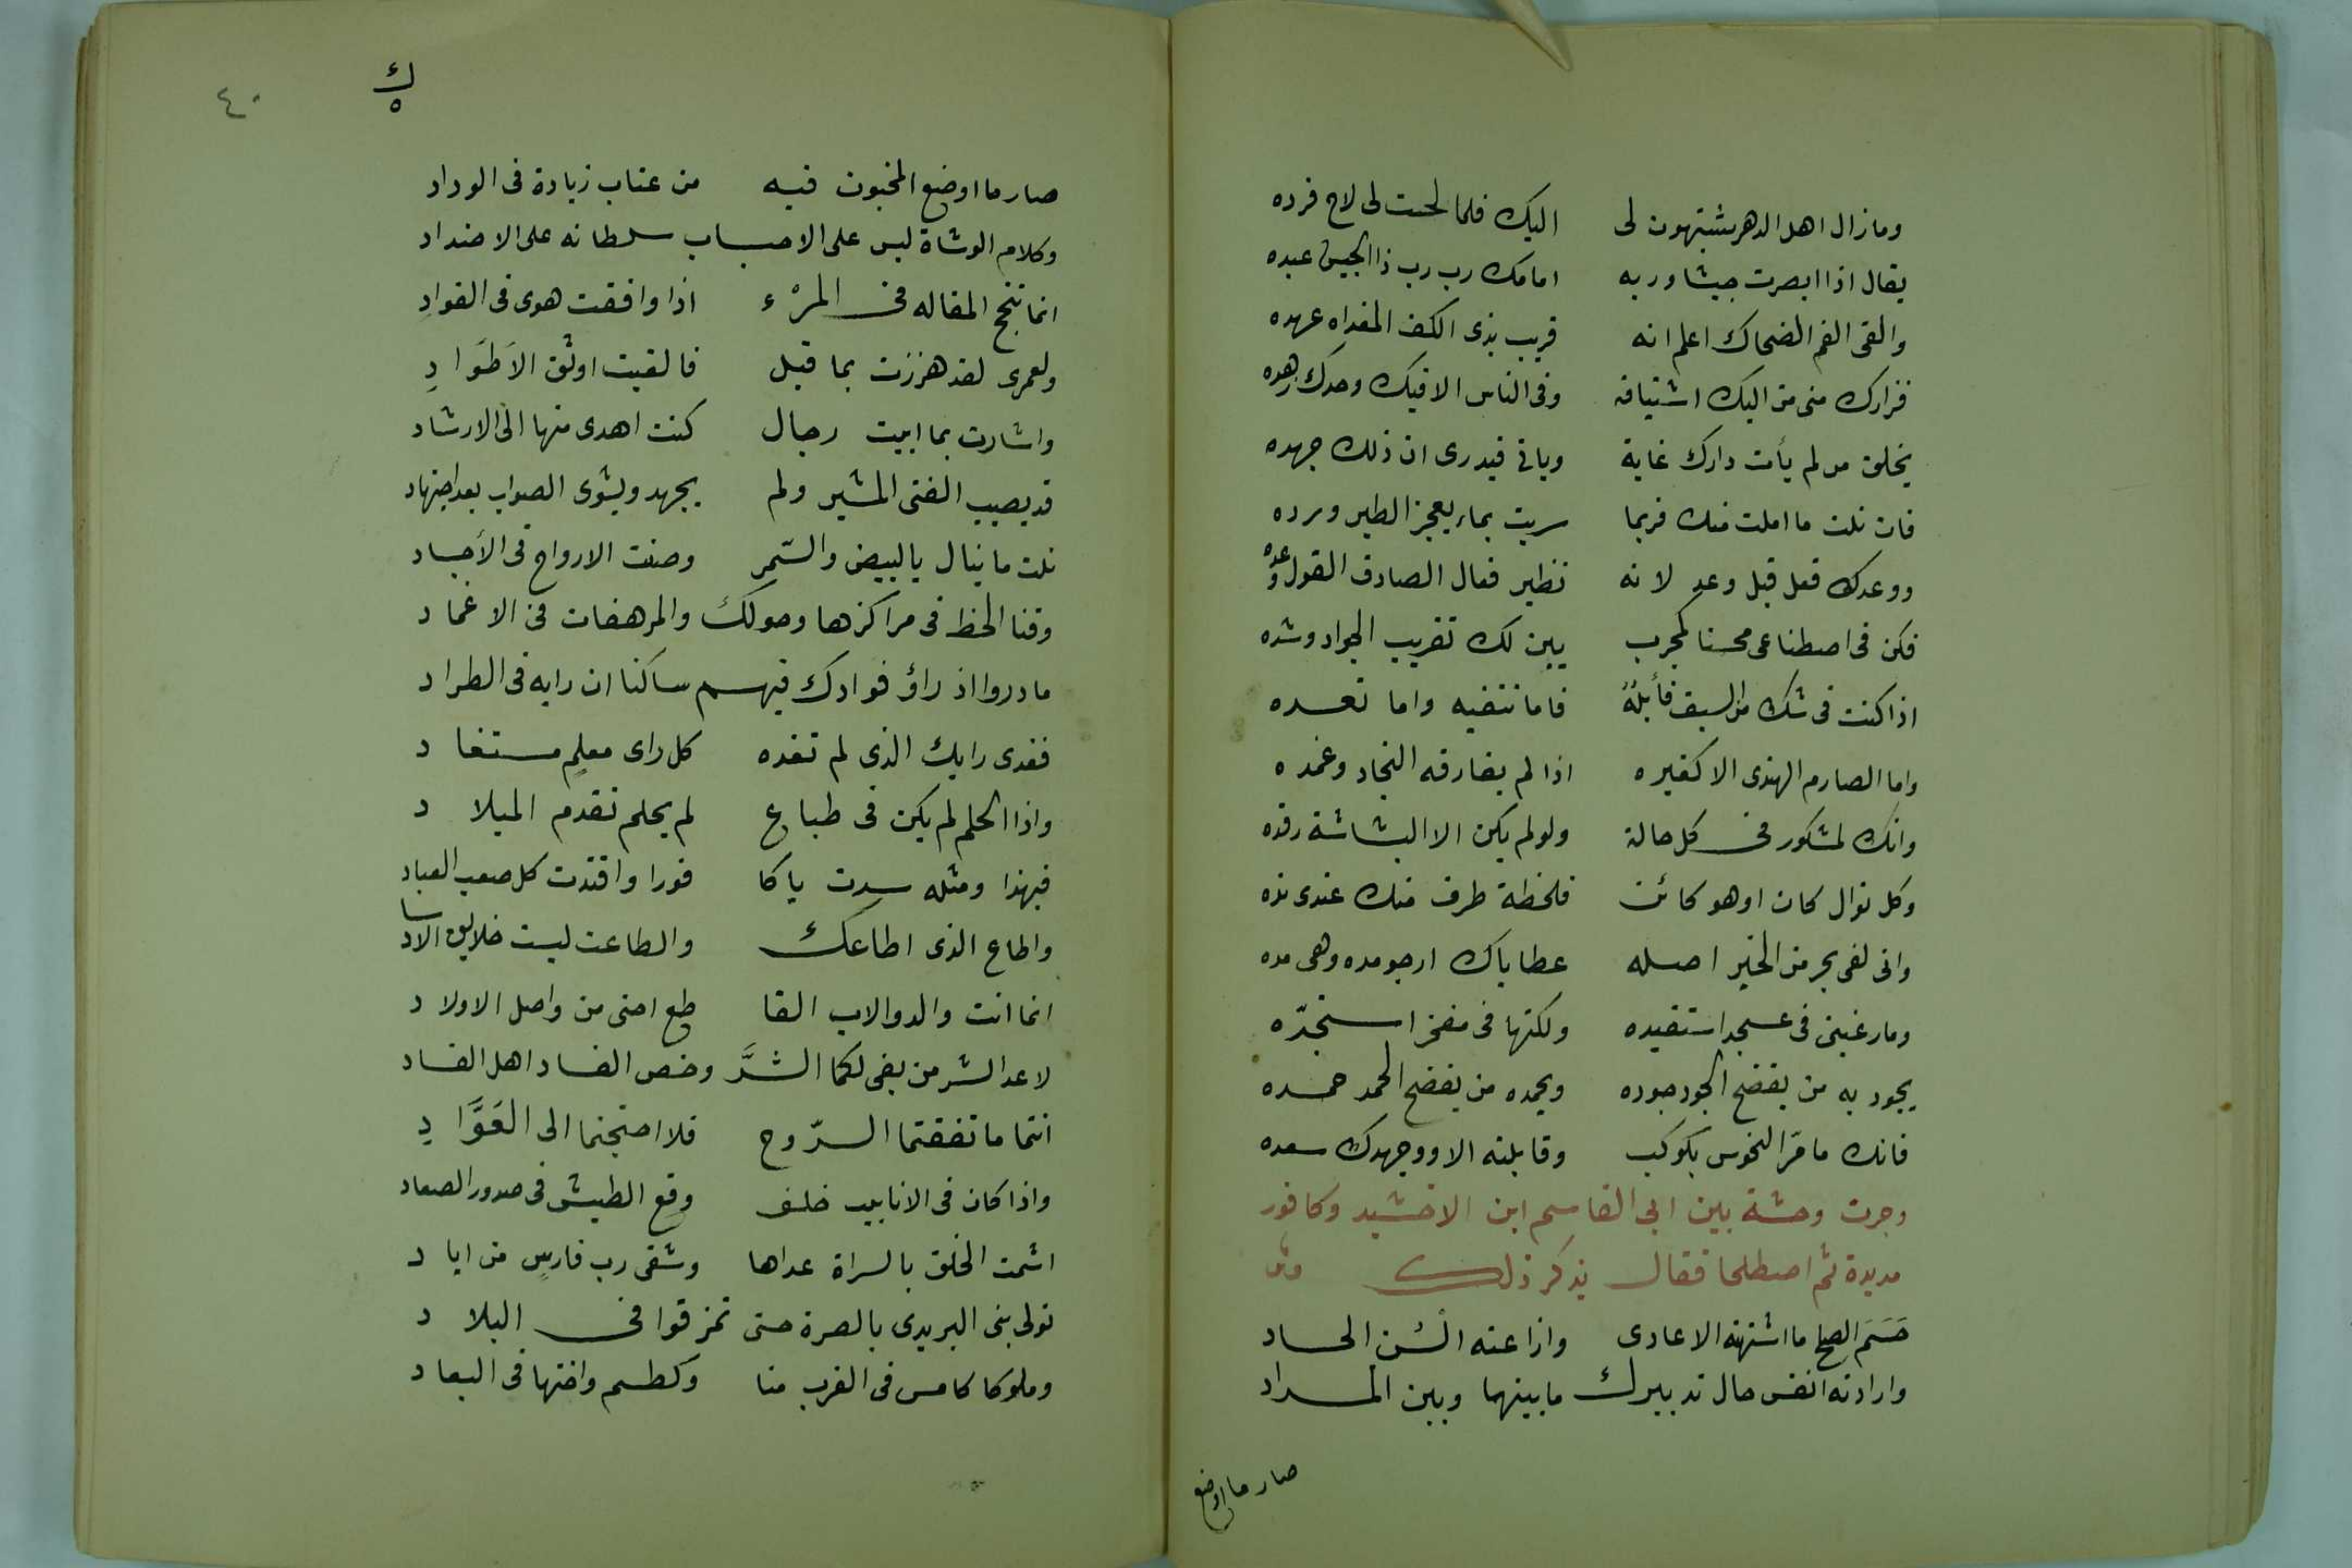 وما زال اهل الدهر يشتبهون لى اليك فلما لحت لى لاح فرده
يقال اذا ابصرت جيشا وربه امامك رب رب ذا الجيش عبده
والقى الفم الضحاك اعلم انه قريب بذى الكف المفداه عهده
فزارك منى من اليك اشتياقه وفى الناس الا فيك وحدك زهده
يخلف من لم يأت دارك غاية وياتى فيدرى ان ذلك جهده
فان نلت ما املت منك فربما سريت بماء يعجز الطير ورده
ووعدك فعل قبل وعد لانه نظير فعال الصادق القول وعده
فكن فى اصطناعى محسنا كمجرب يبين لك تقريب الجواد وشده
اذا كنت فى شك من السيف فأبله فاما تنفيه واما تعده
واما الصارم الهندى الا كغيره اذا لم يفارقه النجاد وغمده
وانك لمشكور فى كل حالة ولو لم يكن الا البشاشة رفده
وكل نوال كان او هو كائن فلحظة طرف منك عندى نده
وانى لفى بحر من الخير اصله عطاياك ارجو مده وهى مده
وما رغبتى فى عسجد استفيده ولكنها فى مفخر استجدّه
يجود به من يفضح الجود جوده ويحمده من يفضح الحمد حمده
فانك ما مرّ النحوس بكوكب وقابلته الا ووجهك سعده
وجرت وحشة بين ابى القاسم ابن الاخشيد وكافور
مديدة ثم اصطلحا فقال يذكر ذلك
حَسَمَ الصلح ما اشتهته الاعادى واذاعته السُن الحساد
وارادته انفس حال تدبيرك ما بينها وبين المراد
صار ما اوضع
٤٠
ك
٥
صار ما اوضع المخبون فيه من عتاب زيادة فى الوداد
وكلام الوشاة ليس على الاحباب سلطانه على الاضداد
انما تنجح المقاله فى المرْء اذا وافقت هوى فى الفوادِ
ولعمرى لقد هززت بما قيل فالفيت اوثق الاَطوَادِ
واشارت بما ابيت رجال كنت اهدى منها الى الارشاد
قد يصيب الفتى المشير ولم يجهد ويشوى الصواب بعد اجتهاد
نلت ما ينال بالبيض والسّمرِ وصنت الارواح فى الأجساد
وقنا الخط فى مراكزها وحولك والمرهفات فى الاغماد
ما دروا اذ راؤ فوادك فيهم ساكنا ان رايه فى الطراد
ففدى رايك الذى لم تفده كل راى معلمٍ مستفاد
واذا الحلم لم يكن فى طباع لم يحلم تقدم الميلاد
فبهذا ومثله سدت ياكا فورا واقتدت كل صعب القياد
واطاع الذى اطاعك والطاعت ليست خلايق الاساد
انما انت والد والاب القا طع احنى من واصل الاولاد
لا عدا الشر من بغى لكما الشرَّ وخص الفساد اهل الفساد
انتما ما تفقتما الرّوح فلا احتجتما الى العَوَّادِ
واذا كان فى الانابيب خلف وقع الطيش فى صدور الصعاد
اشمت الخلف بالسراة عداها وشفى رب فارسٍ من اياد
تولى بنى البريدى بالصرة حتى تمزقوا فى البلاد
وملوكا كامس فى القرب منا وكطسم واختها فى البعاد